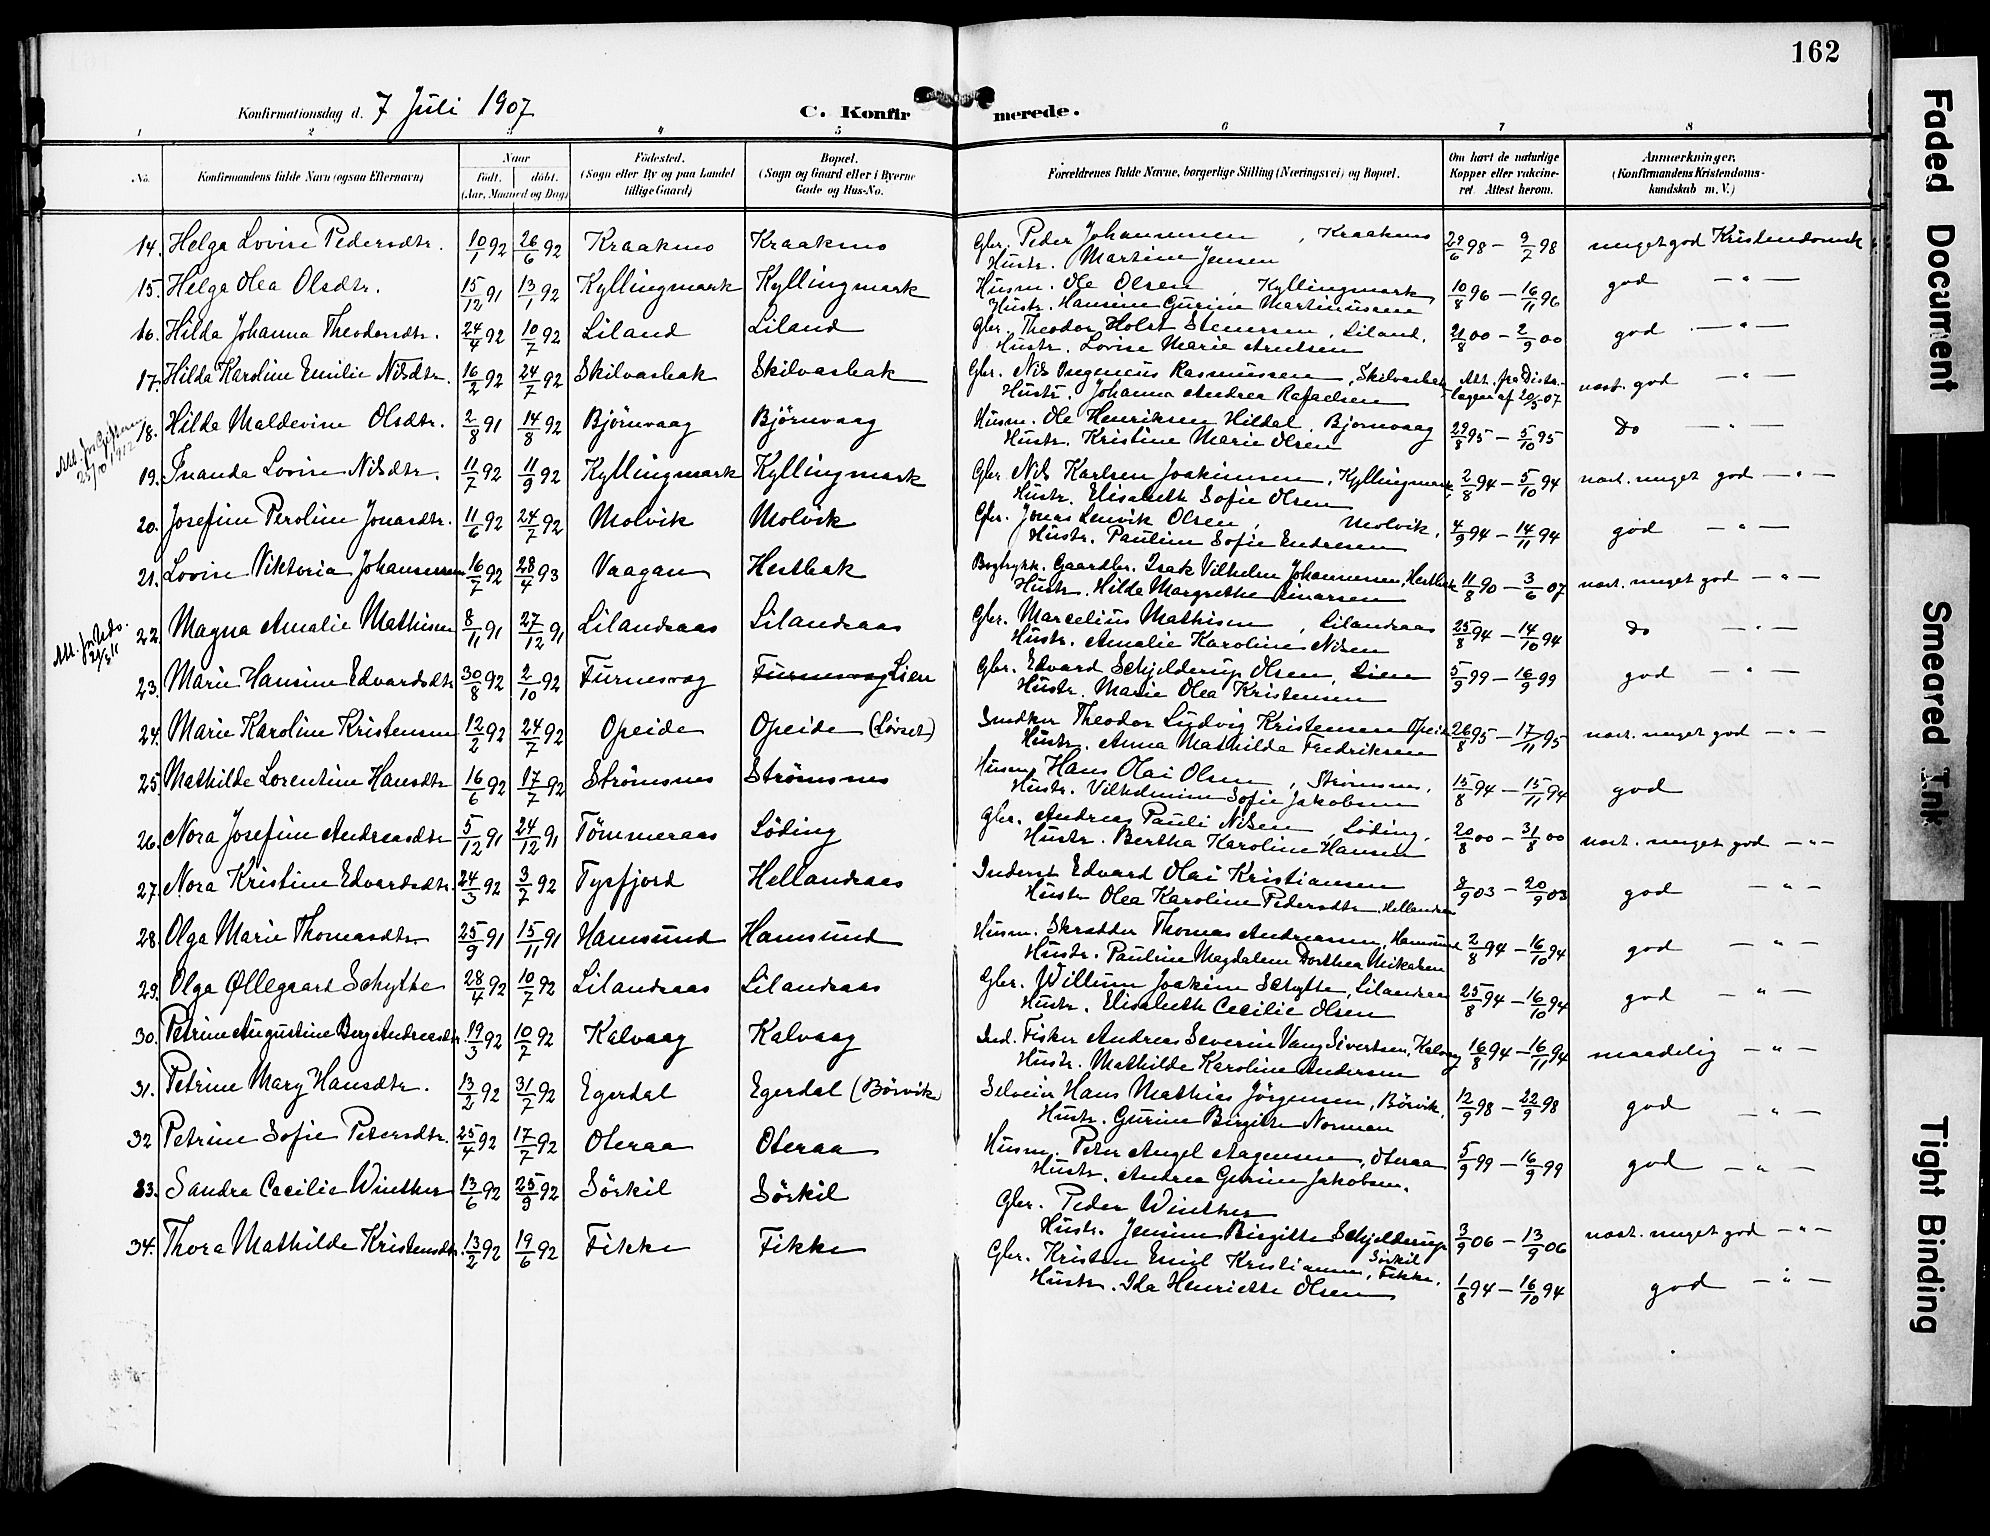 162
Konfirmationsdag d. 7 Juli 1907
C. Konfirmerede.
1 2 3 4 5 6 7 8
No. Konfirmandens fulde Navn (ogsaa Efternavn) Naar født. døbt. (Aar, Maaned og Dag) Fødested. (Sogn eller By og paa Landet tillige Gaard) Bopæl. (Sogn og Gaard eller i Byerne Gade og Hus-No. Forældrenes fulde Navne, borgerlige Stilling (Næringsvei) og Bopæl. Om havt de naturlige Kopper eller vakcineret Attest herom. Anmærkninger. (Konfirmandens Kristendomskundskab m. V.)
14. Helga Lovise Pedersdtr. 10/1 92 26/6 92 Kraakmo Kraakmo Gbr. Peder Johannessen, Kraakmo 29/6 98 – 9/7 98 meget god Kristendomsk
Hustr. Martine Jensen
15. Helga Olea Olsdtr. 15/12 91 13/1 92 Kyllingmark Kyllingmark Husm. Ole Olsen, Kyllingmark 10/8 96 – 16/11 96 god – " –
Hustr. Hansine Gurine Martinussen
16. Hilda Johanna Theodorsdtr. 24/4 92 10/7 92 Liland Liland Gbr. Theodor Holst Stenersen, Liland. 21/8 00 – 2/9 00 god – " –
Hustr. Lovise Marie Arntsen
17. Hilda Karoline Emilie Nilsdtr. 16/2 92 24/7 92 Skilvasbak Skilvasbak Gbr. Nils Ingenius Rasmussen, Skilvasbak Att. fra Distr. nast. god – " –
Hustr. Johanna Andrea Rafaelsen lægen af 20/5 07
18. Hilda Maldevine Olsdtr. 2/8 91 14/8 92 Bjørnvaag Bjørnvaag Husm. Ole Henriksen Hildal, Bjørnvaag 29/8 95 – 5/10 95 Do – " –
Att. for Giftern 25/10 1912
Hustr. Kristine Marie Olsen
19. Inanda Lovise Nilsdtr. 11/7 92 11/9 92 Kyllingmark Kyllingmark Gbr. Nils Karlsen Joakimsen, Kyllingmark 2/8 94 – 5/10 94 nast. meget god – " –
Hustr. Elisabeth Sofie Olsen
20. Josefine Peroline Jonasdtr. 11/6 92 24/7 92 Molvik Molvik Gbr. Jonas Lenvik Olsen, Molvik, 4/9 94 – 14/11 94 god – " –
Hustr. Pauline Sofie Endresen
21. Lovise Viktoria Johannessen 16/7 92 28/4 93 Vaagan Hestbak Bogtrykk. Gaardbr. Isak Vilhelm Johannessen, Hestbak 11/8 90 – 3/6 07 nast. meget god – " –
Hustr. Hilda Margrethe Einarsen
22. Magna Amalie Mathisen 8/11 91 27/12 91 Lilandsaas Lilandsaas Gbr. Marcelius Mathisen, Lilandsaas 25/8 94 – 14/10 94 Do – " –
Hustr. Amalie Karoline Nilsen
23. Marie Hansine Edvardsdtr 30/8 92 2/10 92 Furnesvag Furnesvag Lien Gbr. Edvard Schjelderup Olsen, Lien 5/9 99 – 16/9 99 god – " –
Hustr. Marie Olea Kristensen
24. Marie Karoline Kristensen 12/2 92 24/7 92 Opeide Opeide (Løvset) Snedker Theodor Ludvig Kristensen Opeide 26/8 95 – 17/11 95 nast. meget god – " –
Hustr. Anna Mathilda Fredriksen
25 Mathilde Lorentine Hansdtr 16/6 92 17/7 92 Strømsnes Strømsnes Husm. Hans Olai Olsen, Strømsnes, 15/8 94 – 15/11 94 god
Hustr. Vilhelmine Sofie Jakobsen
26. Nora Josefine Andreasdtr 5/12 91 24/12 91 Tømmeraas Løding Gbr. Andreas Pauli Nilsen, Løding. 20/8 00 – 31/8 00 nast. meget god – " –
Hustr. Bertha Karoline Hansen
27. Nora Kristine Edvardsdtr. 24/3 92 3/7 92 Tysfjord Hellandsaas Inderst Edvard Olai Kristiansen 8/9 03 – 20/9 03 god – " –
Hustr Olea Karoline Pedersdtr Hellandsaa
28. Olga Marie Thomasdtr. 25/9 91 15/11 91 Hamsund Hamsund Husm. Skrædder Thomas Andreassen, Hamsund 2/8 94 – 16/10 94 god – " –
Hustr. Pauline Magdalene Dorthea Mikalsen
29. Olga Øllegaard Schytte 28/4 92 10/7 92 Lilandsaas Lilandsaas Gbr. Willum Joakim Schytte, Lilandsaas 25/8 94 – 16/10 94 god – " –
Hustr. Elisabeth Cecilie Olsen
30. Petrine Augustine Berg Andreasdtr. 19/3 92 10/7 92 Kalvaag Kalvaag Ind. Fisker Andreas Severin Vang Sivertsen, Kalvaag 16/8 94 – 16/11 94 maadelig – " –
Hustr. Mathilde Karoline Andersen
31. Petrine Mary Hansdtr. 13/2 92 31/7 92 Egerdal Egerdal (Børvik) Selveier Hans Mathias Jörgensen, Børvik, 12/9 98 – 22/9 98 god – " –
Hustr. Gurine Birgitte Norman
32 Petrine Sofie Petersdtr. 25/4 92 17/7 92 Oteraa Oteraa Husm. Peter Angel Aagensen, Oteraa 5/9 99 – 16/9 99 god – " –
Hustr. Andrea Gurine Jakobsen.
33. Sandra Cecilie Winther 13/6 92 25/9 92 Sörkil Sörkil Gbr. Peder Winther
Hustr. Jensine Birgitte Schjelderup Sörkil 3/9 06 – 13/9 06 nast. meget god – " –
34. Thora Mathilde Kristensdtr. 13/2 92 19/6 92 Fikke Fikke Gbr. Kristen Emil Kristiansen, Fikke.
Hustr. Ida Henriette Olsen 1/8 94 – 16/10 94 god – " –
Faded Document
Smeared Ink
Tight Binding